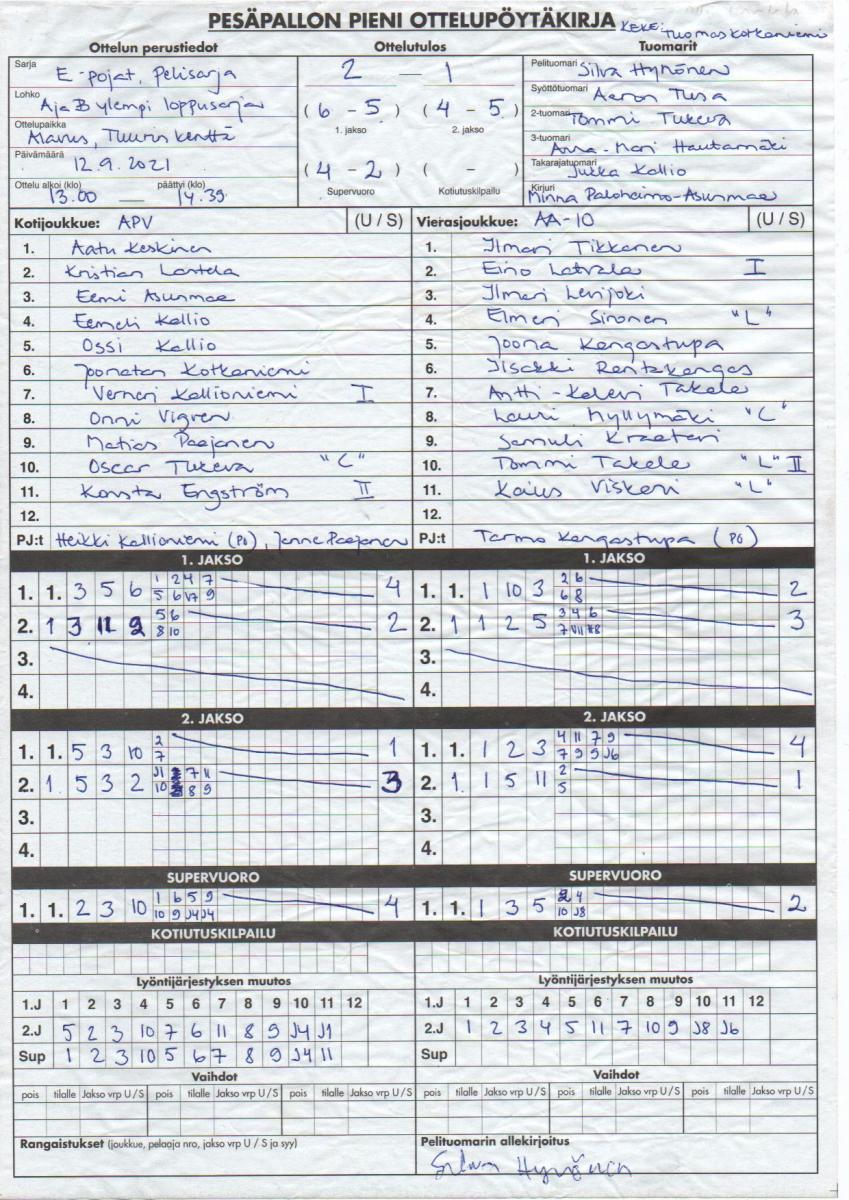 PESÄPALLON PIENI OTTELUPÖYTÄKIRJA KEKE: Tuomas Kotkaniemi
Ottelun perustiedot Ottelutulos Tuomarit
Sarja E-pojat, Pelisarja 2 — 1 Pelituomari Silva Hynönen
Lohko A ja B ylempi loppusarja (6 - 5) (4 - 5) Syöttötuomari Aaron Tusa
1. jakso 2. jakso
Ottelupaikka Alavus, Tuurin kenttä 2-tuomari Tommi Tukeva
Päivämäärä 12.9.2021 (4 - 2) ( - ) 3-tuomari Anna-Mari Hautamäki
Takarajatuomari Jukka Kallio
Ottelu alkoi (klo) 13.00 — päättyi (klo) 14.39 Supervuoro Kotiutuskilpailu Kirjuri Minna Paloheimo-Asunmaa
Kotijoukkue: APV (U / S) Vierasjoukkue: AA-10 (U / S)
1. Aatu Keskinen 1. Ilmari Tikkanen
2. Kristian Lantela 2. Eino Latvala I
3. Eemi Asunmaa 3. Ilmari Levijoki
4. Eemeli Kallio 4. Elmeri Sironen "L"
5. Ossi Kallio 5. Joona Kangastupa
6. Joonatan Kotkaniemi 6. Iisakki Rantakangas
7. Verneri Kallioniemi I 7. Antti-Kalevi Takala
8. Onni Vigren 8. Lauri Myllymäki "C"
9. Matias Paajanen 9. Samuli Kraateri
10. Oscar Tukeva "C" 10. Tommi Takala "L" II
11. Konsta Engström II 11. Kaius Viskari "L"
12. 12.
PJ:t Heikki Kallioniemi (P0), Janne Paajanen PJ:t Tarmo Kangastupa (P0)
1. JAKSO 1. JAKSO
1 2 4 7 2 6
1. 1. 3 5 6 4 1. 1. 1 10 3 2
5 6 V7 9 6 8
5 6 3 4 6
2. 1 3 11 2 2 2. 1 1 2 5 3
8 10 7
3. 3.
4. 4.
2. JAKSO 2. JAKSO
2 4 11 7 9
1. 1. 5 3 10 1 1. 1. 1 2 3 4
7 7 9 9 J6
J1 7 11 2
2. 1 5 3 2 3 2. 1 1 5 11 1
10 8 9 5
3. 3.
4. 4.
SUPERVUORO SUPERVUORO
1 6 5 9 2 4
1. 1. 2 3 10 4 1. 1. 1 3 5 2
10 9 J4 J4 10 J8
KOTIUTUSKILPAILU KOTIUTUSKILPAILU
Lyöntijärjestyksen muutos Lyöntijärjestyksen muutos
1.J 1 2 3 4 5 6 7 8 9 10 11 12 1.J 1 2 3 4 5 6 7 8 9 10 11 12
2.J 5 2 3 10 7 6 11 8 9 J4 J1 2.J 1 2 3 4 5 11 7 10 9 J8 J6
Sup 1 2 3 10 5 6 7 8 9 J4 11 Sup
Vaihdot Vaihdot
pois tilalle Jakso vrp U / S pois tilalle Jakso vrp U / S pois tilalle Jakso vrp U / S pois tilalle Jakso vrp U / S pois tilalle Jakso vrp U / S pois tilalle Jakso vrp U / S
Rangaistukset (joukkue, pelaaja nro, jakso vrp U / S ja syy) Pelituomarin allekirjoitus
Silva Hynönen